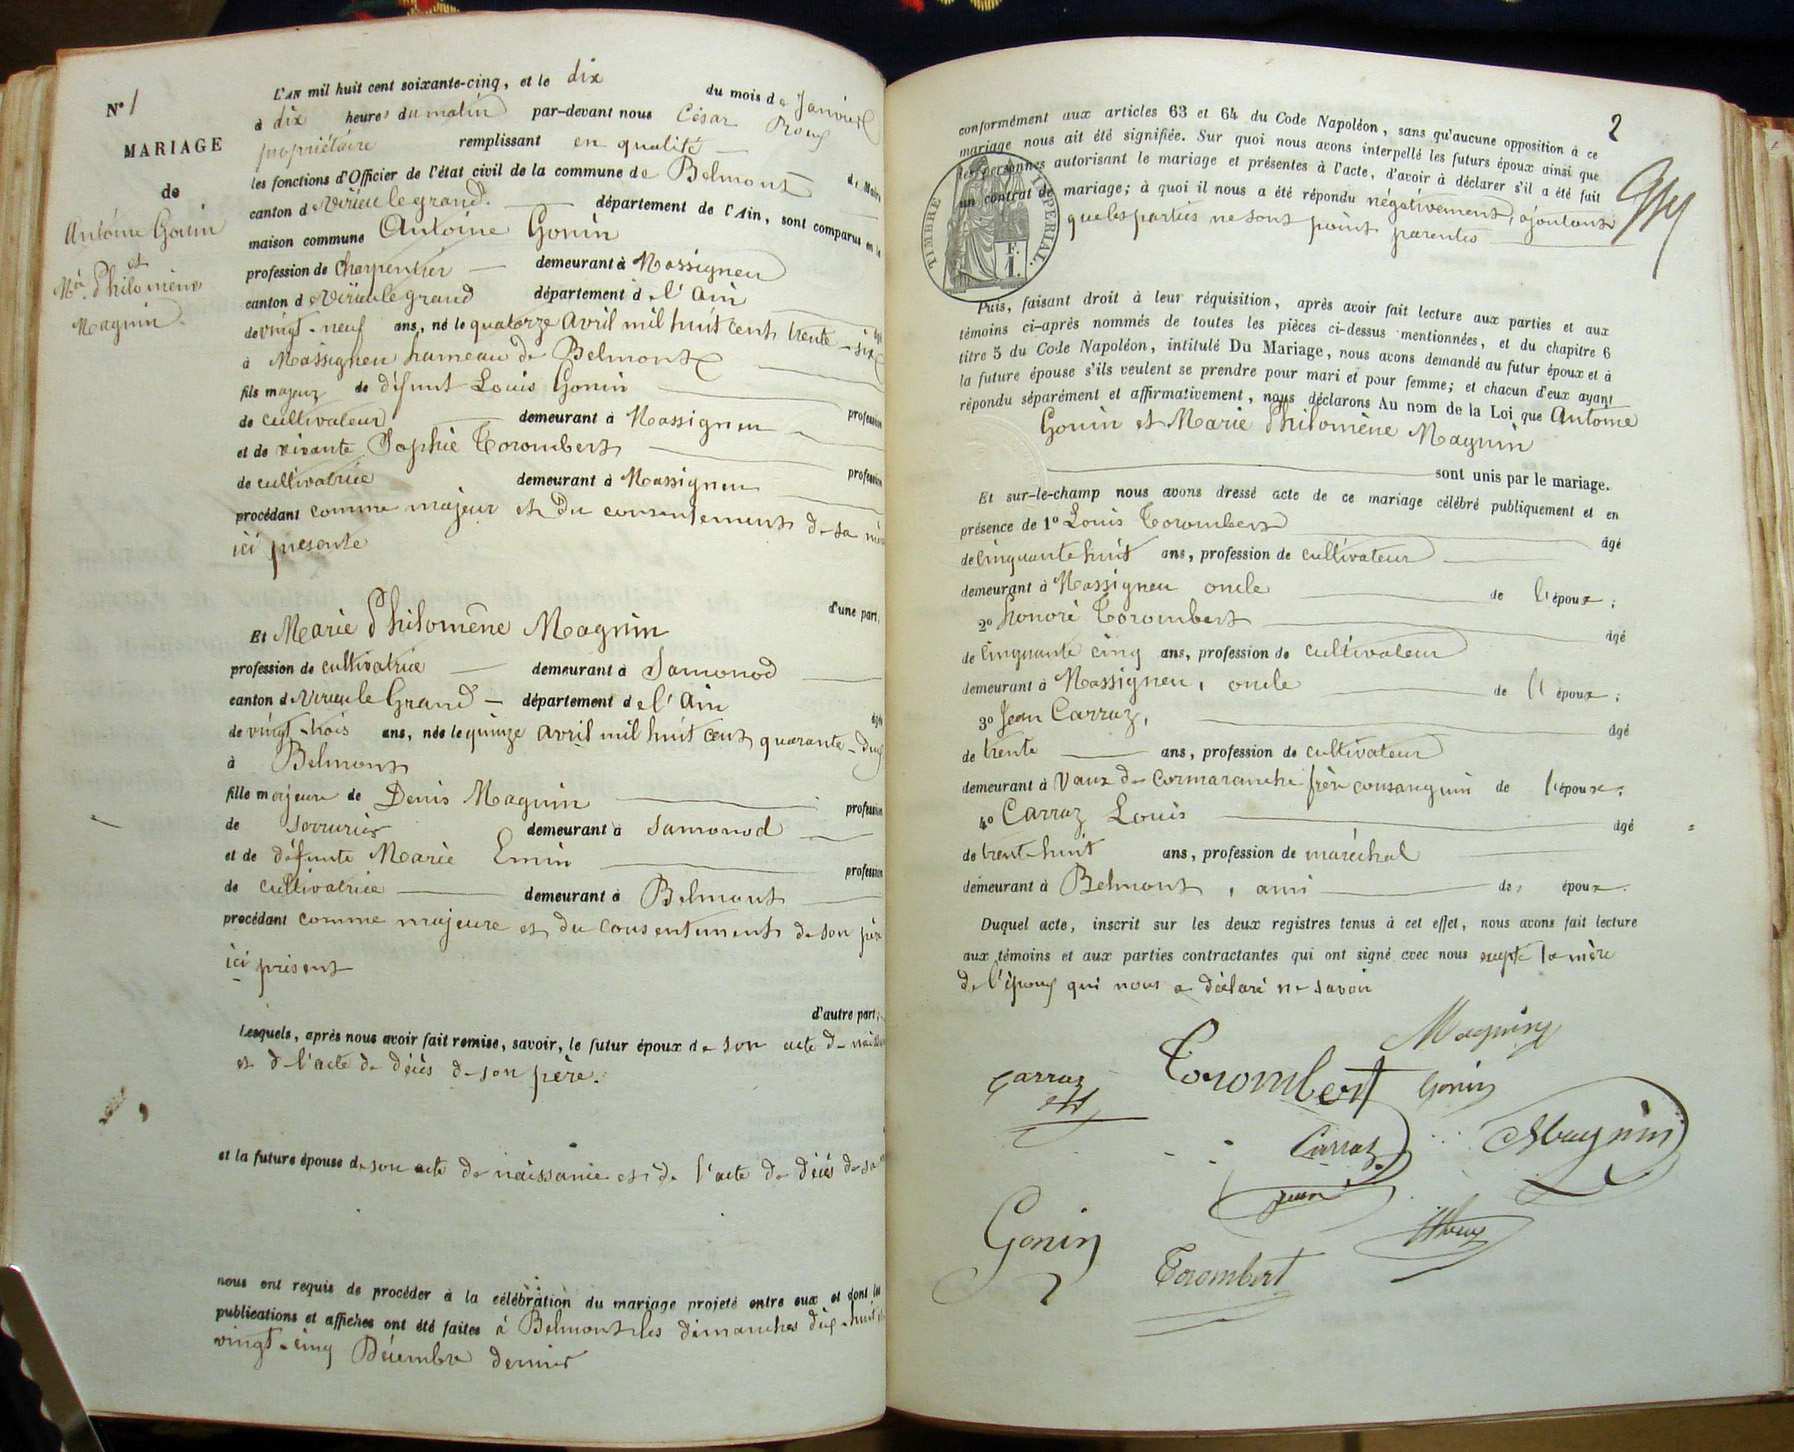 N° 1
MARIAGE
de
Antoine Gonin
et
Mie Philomène
Magnin.
L'AN mil huit cent soixante-cinq, et le dix du mois de Janvier
à dix heures du matin par-devant nous César Roux
propriétaire remplissant en qualité de Maire
les fonctions d'Officier de l'état civil de la commune de Belmont
canton de Virieu le grand. département de l'Ain, sont comparus en la
maison commune Antoine Gonin
profession de charpentier demeurant à Massignieu
canton de Virieu le grand département de l'Ain
de vingt-neuf ans, né le quatorze avril mil huit cent trente-six
à Massignieu hameau de Belmont
fils majeur de défunt Louis Gonin profession
de cultivateur demeurant à Massignieu
et de vivante Sophie Corombert profession
de cultivatrice demeurant à Massignieu
procédant comme majeur et du consentement de sa mère
ici présente
d'une part,
Et Marie Philomène Magnin
profession de cultivatrice demeurant à Samonod
canton de Virieu le Grand département de l'Ain
de vingt-trois ans, née le quinze avril mil huit cent quarante-
à Belmont
fille majeure de Denis Magnin profession
de serrurier demeurant à Samonod
et de défunte Marie Emin profession
de cultivatrice demeurant à Belmont
procédant comme majeure et du consentement de son père
ici présent
d'autre part;
Lesquels, après nous avoir fait remise, savoir, le futur époux de son acte de
et de l'acte de décès de son père.
et la future épouse de son acte de naissance et de l'acte de décès de sa
nous ont requis de procéder à la célébration du mariage projeté entre eux et dont les
publications et affiches ont été faites à Belmont les dimanches dix-huit et
vingt-cinq Décembre dernier
2
conformément aux articles 63 et 64 du Code Napoléon, sans qu'aucune opposition à ce
mariage nous ait été signifiée. Sur quoi nous avons interpellé les futurs époux ainsi que
les personnes autorisant le mariage et présentes à l'acte, d'avoir à déclarer s'il a été fait
un contrat de mariage; à quoi il nous a été répondu négativement, ajoutant
que les parties ne sont point parentes
TIMBRE IMPERIAL.
1 F.
Puis, faisant droit à leur réquisition, après avoir fait lecture aux parties et aux
témoins ci-après nommés de toutes les pièces ci-dessus mentionnées, et du chapitre 6
titre 5 du Code Napoléon, intitulé Du Mariage, nous avons demandé au futur époux et à
la future épouse s'ils veulent se prendre pour mari et pour femme; et chacun d'eux ayant
répondu séparément et affirmativement, nous déclarons Au nom de la Loi que Antoine
Gonin et Marie Philomène Magnin
sont unis par le mariage.
Et sur-le-champ nous avons dressé acte de ce mariage célébré publiquement et en
présence de 1° Louis Corombert âgé
de cinquante huit ans, profession de cultivateur
demeurant à Massignieu oncle de l'époux;
2° honoré Corombert âgé
de cinquante cinq ans, profession de cultivateur
demeurant à Massignieu, oncle de l'époux;
3° Jean Carraz, âgé
de trente ans, profession de cultivateur
demeurant à Vaux de Cormaranche frère consanguin de l'épouse;
4° Carraz Louis âgé
de trente huit ans, profession de maréchal
demeurant à Belmont, ami des époux.
Duquel acte, inscrit sur les deux registres tenus à cet effet, nous avons fait lecture
aux témoins et aux parties contractantes qui ont signé avec nous excepté la mère
de l'époux qui nous a déclaré ne savoir
Magnin
Carraz
Corombert
Gonin
Carraz
jean
Magnin
Gonin
Corombert